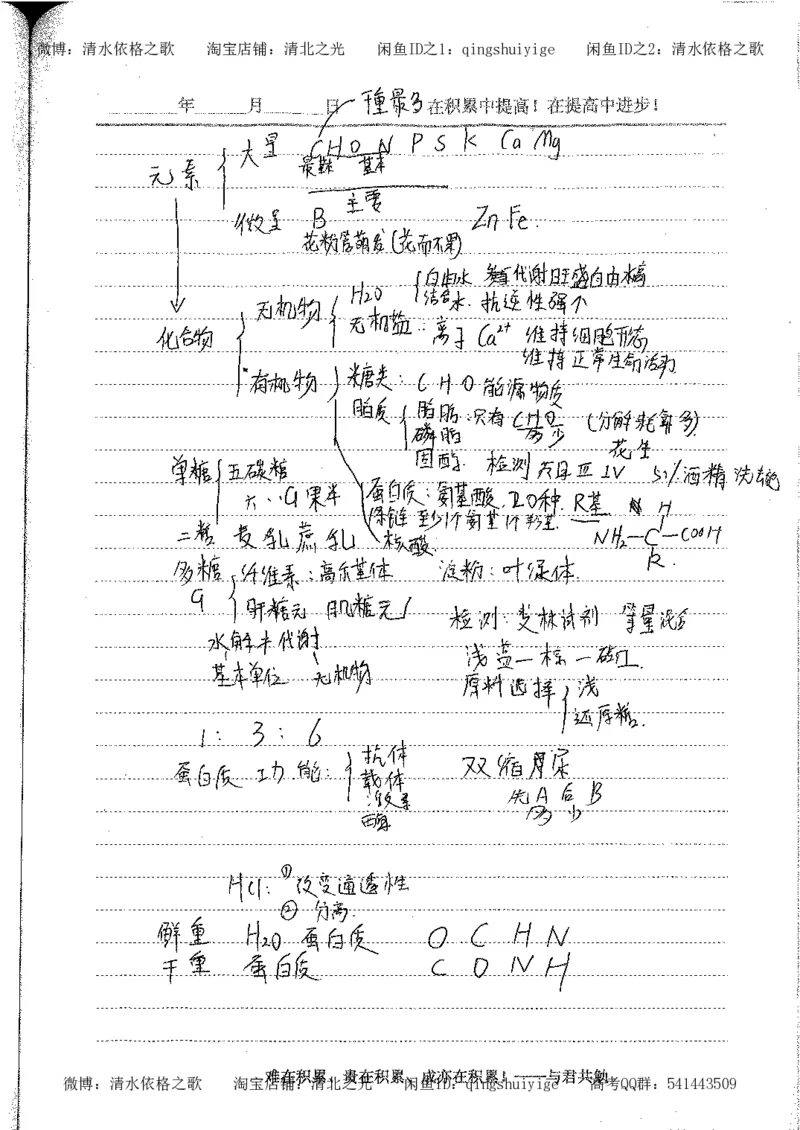 微博：清水依格之歌 淘宝店铺：清北之光 闲鱼ID之1：qingshuiyige 闲鱼ID之2：清水依格之歌
年 月 日 重最多 在积累中提高！在提高中进步！
元素 大量 C H O N P S K Ca Mg
最 基本
主要
微量 B Zn Fe.
花粉管萌发(花而不果)
无机物 H2O 自由水 代谢旺盛自由水高
结合水. 抗逆性强个
化合物 无机盐：离子 Ca²⁺ 维持细胞形态
维持正常生命活动
有机物 糖类：C H O 能源物质
脂质 脂肪：只有CHO (分解耗氧多)
多少
磷脂 花生
固醇. 检测 苏丹Ⅲ Ⅳ 50%酒精洗
单糖 五碳糖
六 G 果半 蛋白质：氨基酸. 20种. R基 H
肽链 至少1个氨基1个羧基 NH2—C—COOH
二糖 麦 乳 蔗 乳 核酸. R.
多糖 纤维素：高尔基体 淀粉：叶绿体.
G 肝糖元 肌糖元 检测：斐林试剂 等量混合
水解 代谢 浅蓝—棕—砖红
基本单位 无机物 原料选择 浅
还原糖.
1： 3： 6
蛋白质 功能： 抗体 双缩脲
载体 先A后B
激素 多少
酶
HCl：① 改变通透性
② 分离.
鲜重 H2O 蛋白质 O C H N
干重 蛋白质 C O N H
难在积累，贵在积累，成亦在积累！——与君共勉
微博：清水依格之歌 淘宝店铺：清北之光 闲鱼ID：qingshuiyige 高考QQ群：541443509